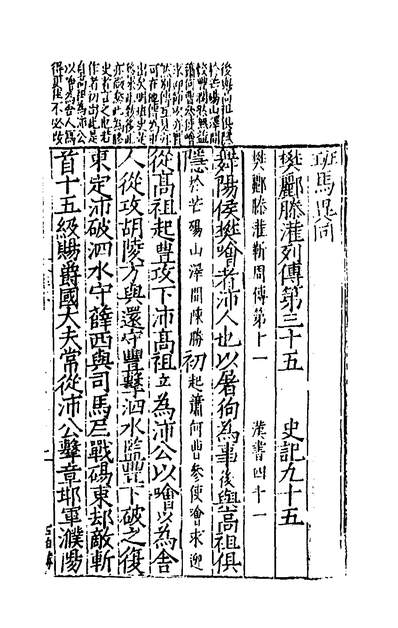 後與高祖俱隱
於芒碭山澤間
蕭何曹參使噲
自高祖為沛公
以噲為舍人
班馬異同
樊酈滕灌列傳第三十五　史記九十五
樊酈滕灌靳周傳第十一　漢書四十一
舞陽侯樊噲者沛人也以屠狗為事後與高祖俱
隱於芒碭山澤間陳勝初起蕭何曹參使噲求迎
從高祖起豐攻下沛高祖立為沛公以噲以為舍
人從攻胡陵方與還守豐擊泗水監豐下破之復
東定沛破泗水守薛西與司馬𡰥戰碭東却敵斬
首十五級賜爵國大夫常從沛公擊章邯軍濮陽